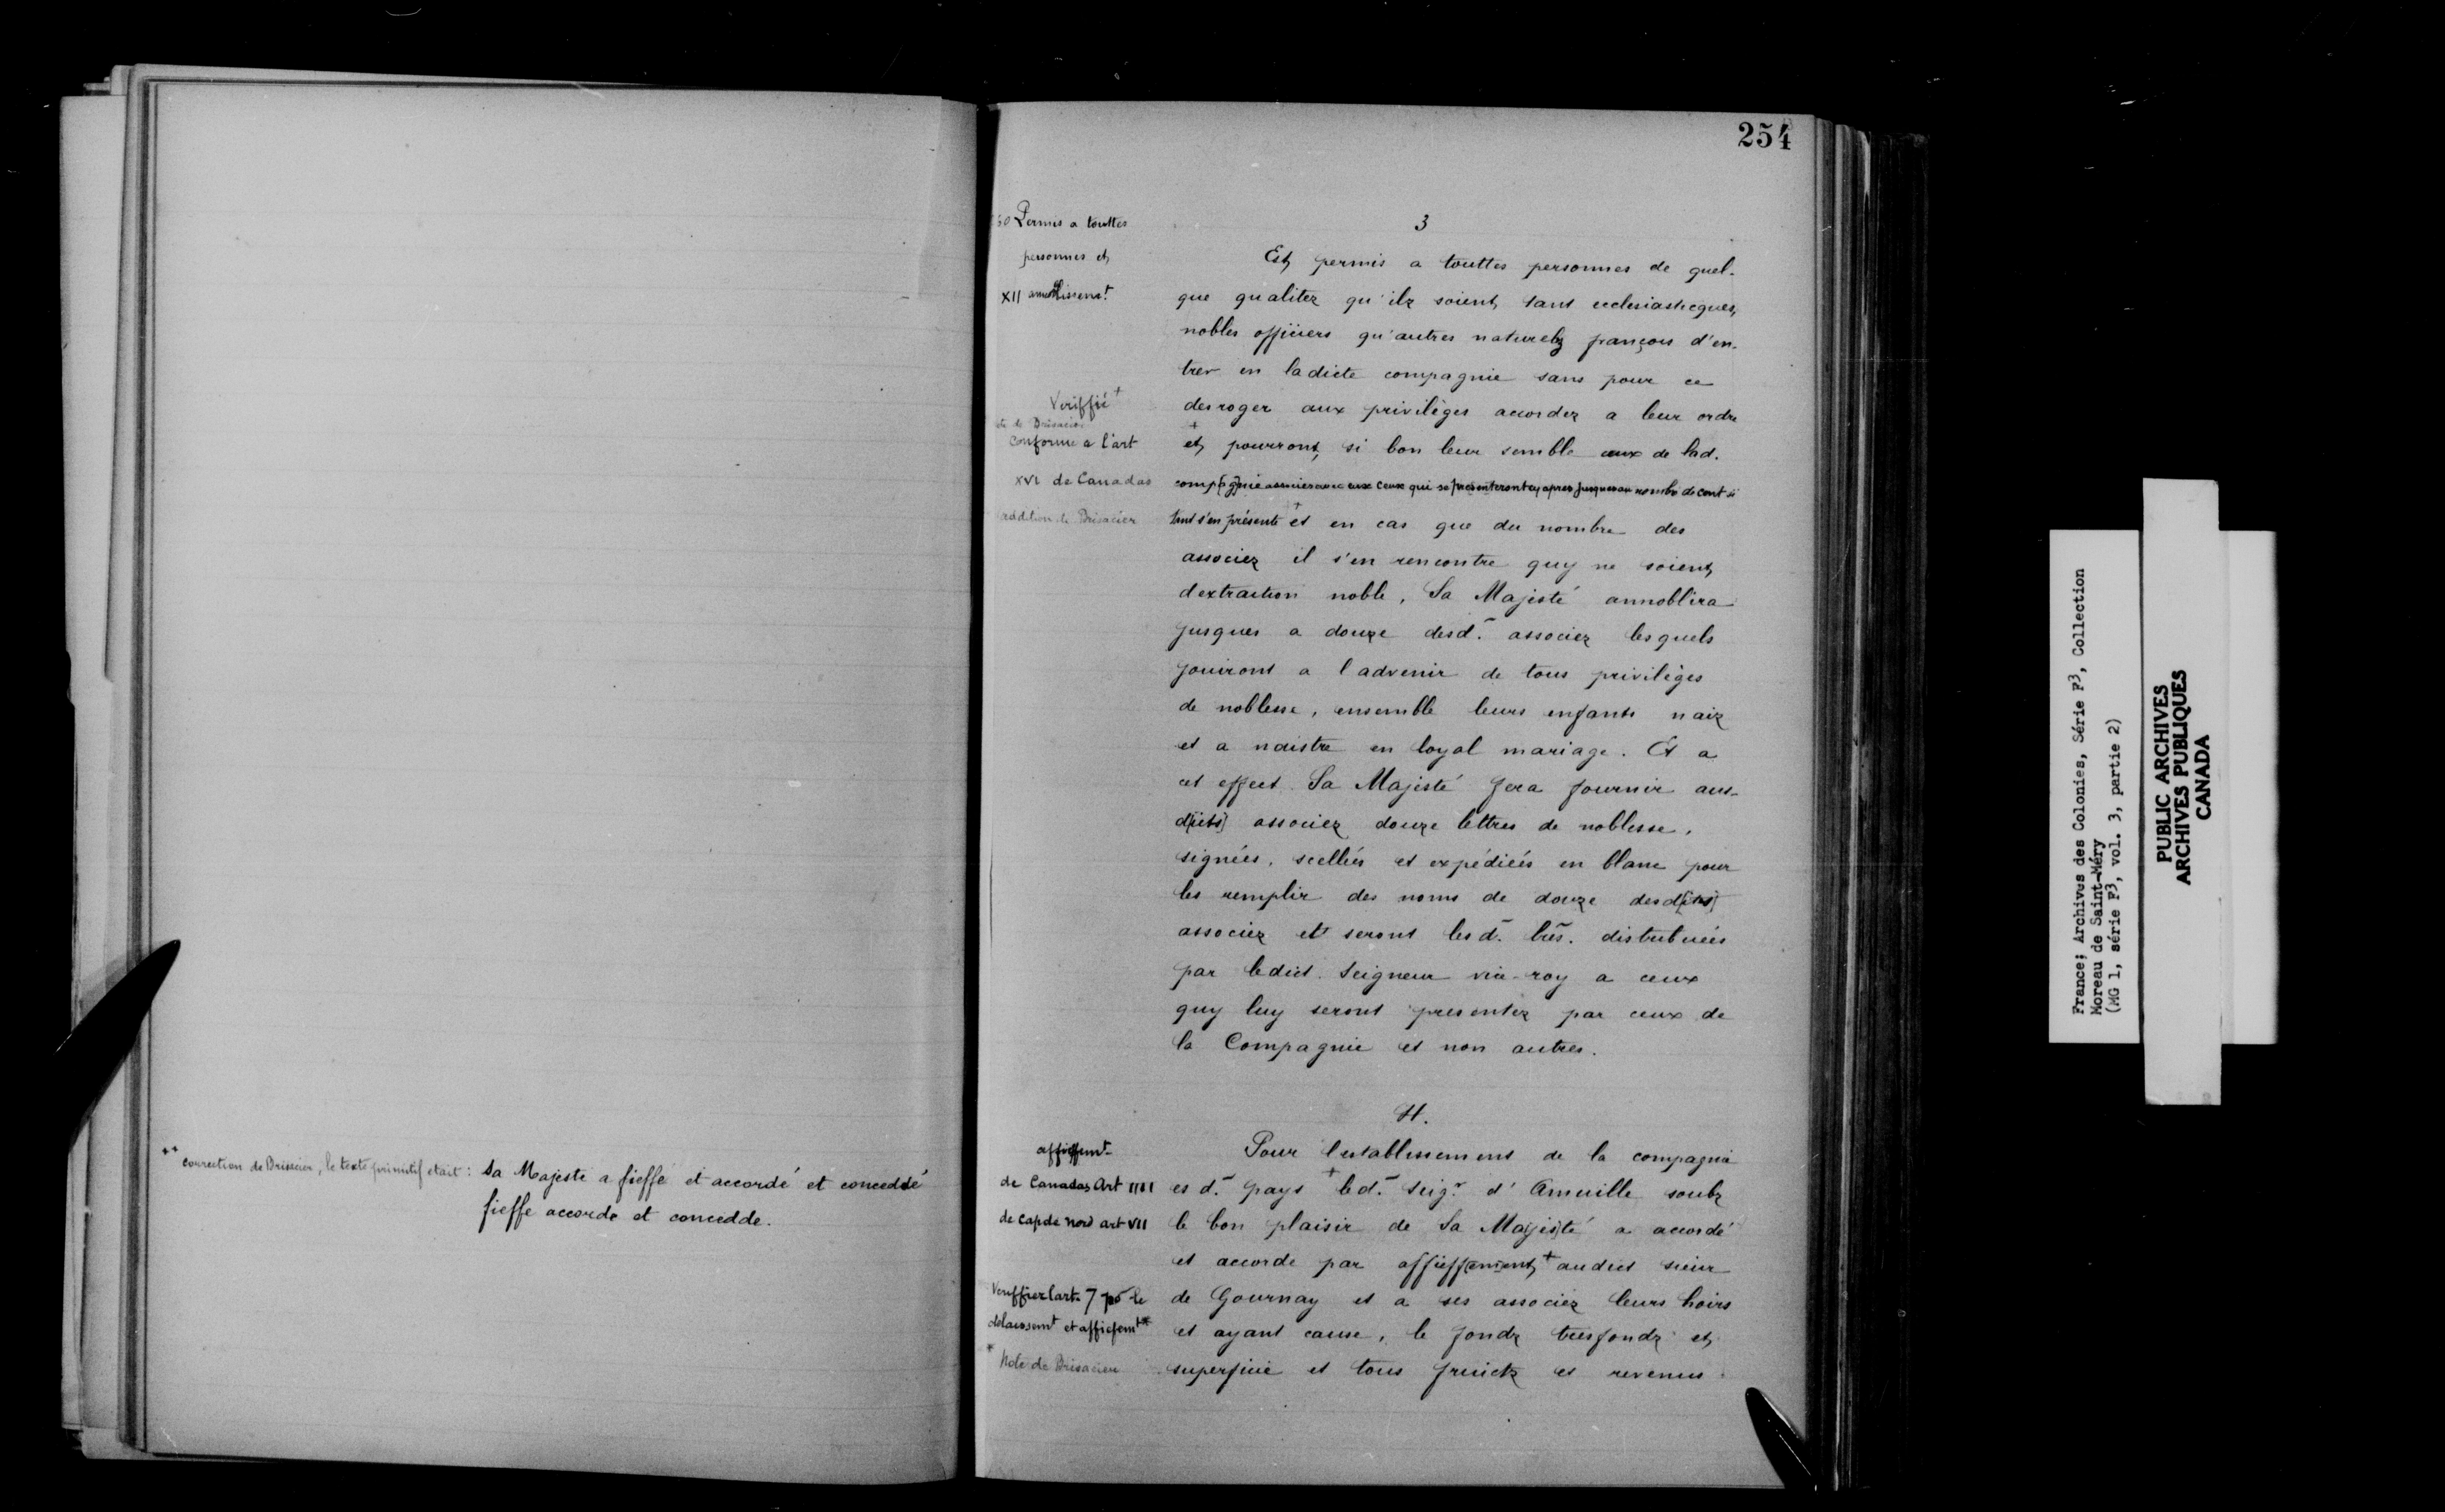 ** correction de Brisacier, le texte primitif etait : Sa Majeste a fieffé et accordé et conceddé
fieffe accorde et concedde.
254
Permis a touttes
personnes et
XII
Veriffié +
Conforme a l'art
XVI de Canadas
addition de Brisacier
3
Est permis a touttes personnes de quel-
que qualitez qu'ilz soient, tant ecclesiasticques,
nobles officiers qu'autres naturelz françois d'en-
trer en ladicte compagnie sans pour ce
desroger aux privilèges accordez a leur ordre
+ et pourront, si bon leur semble ceux de lad.
comp[ag]nie associer avec eux ceux qui se presenteront cy apres jusques au nombre de cent si
tant s'en présente + et en cas que du nombre des
associez il s'en rencontre quy ne soient
dextraction noble, Sa Majesté annoblira
jusques a douze desd. associez lesquels
jouiront a l'advenir de tous privilèges
de noblesse, ensemble leurs enfants naiz
et a naistre en loyal mariage. Et a
cet effect Sa Majesté fera fournir aus-
d[icts] associez douze lettres de noblesse,
signées, scellées et expédiées en blanc pour
les remplir des noms de douze desd[icts]
associez et seront lesd. lres. distribuées
par ledict Seigneur vice-roy a ceux
quy luy seront presentez par ceux de
la Compagnie et non autres.
4.
affieffemt
de Canadas Art IIII
de cap de nord art VII
Veriffier lart. 7 po le
delaissemt et affiefemt *
* Note de Brisacier
Pour lestablissement de la compagnie
es d. pays + led. seigr d'Amville soubz
le bon plaisir de Sa Maj[es]té a accordé
et accorde par affieff[em]ent + audict sieur
de Gournay et a ses associez leurs hoirs
et ayant cause, le fondz tresfondz et
superficie et tous fruictz et revenus
France; Archives des Colonies, Série F3, Collection
Moreau de Saint-Méry
(MG 1, série F3, vol. 3, partie 2)
PUBLIC ARCHIVES
ARCHIVES PUBLIQUES
CANADA